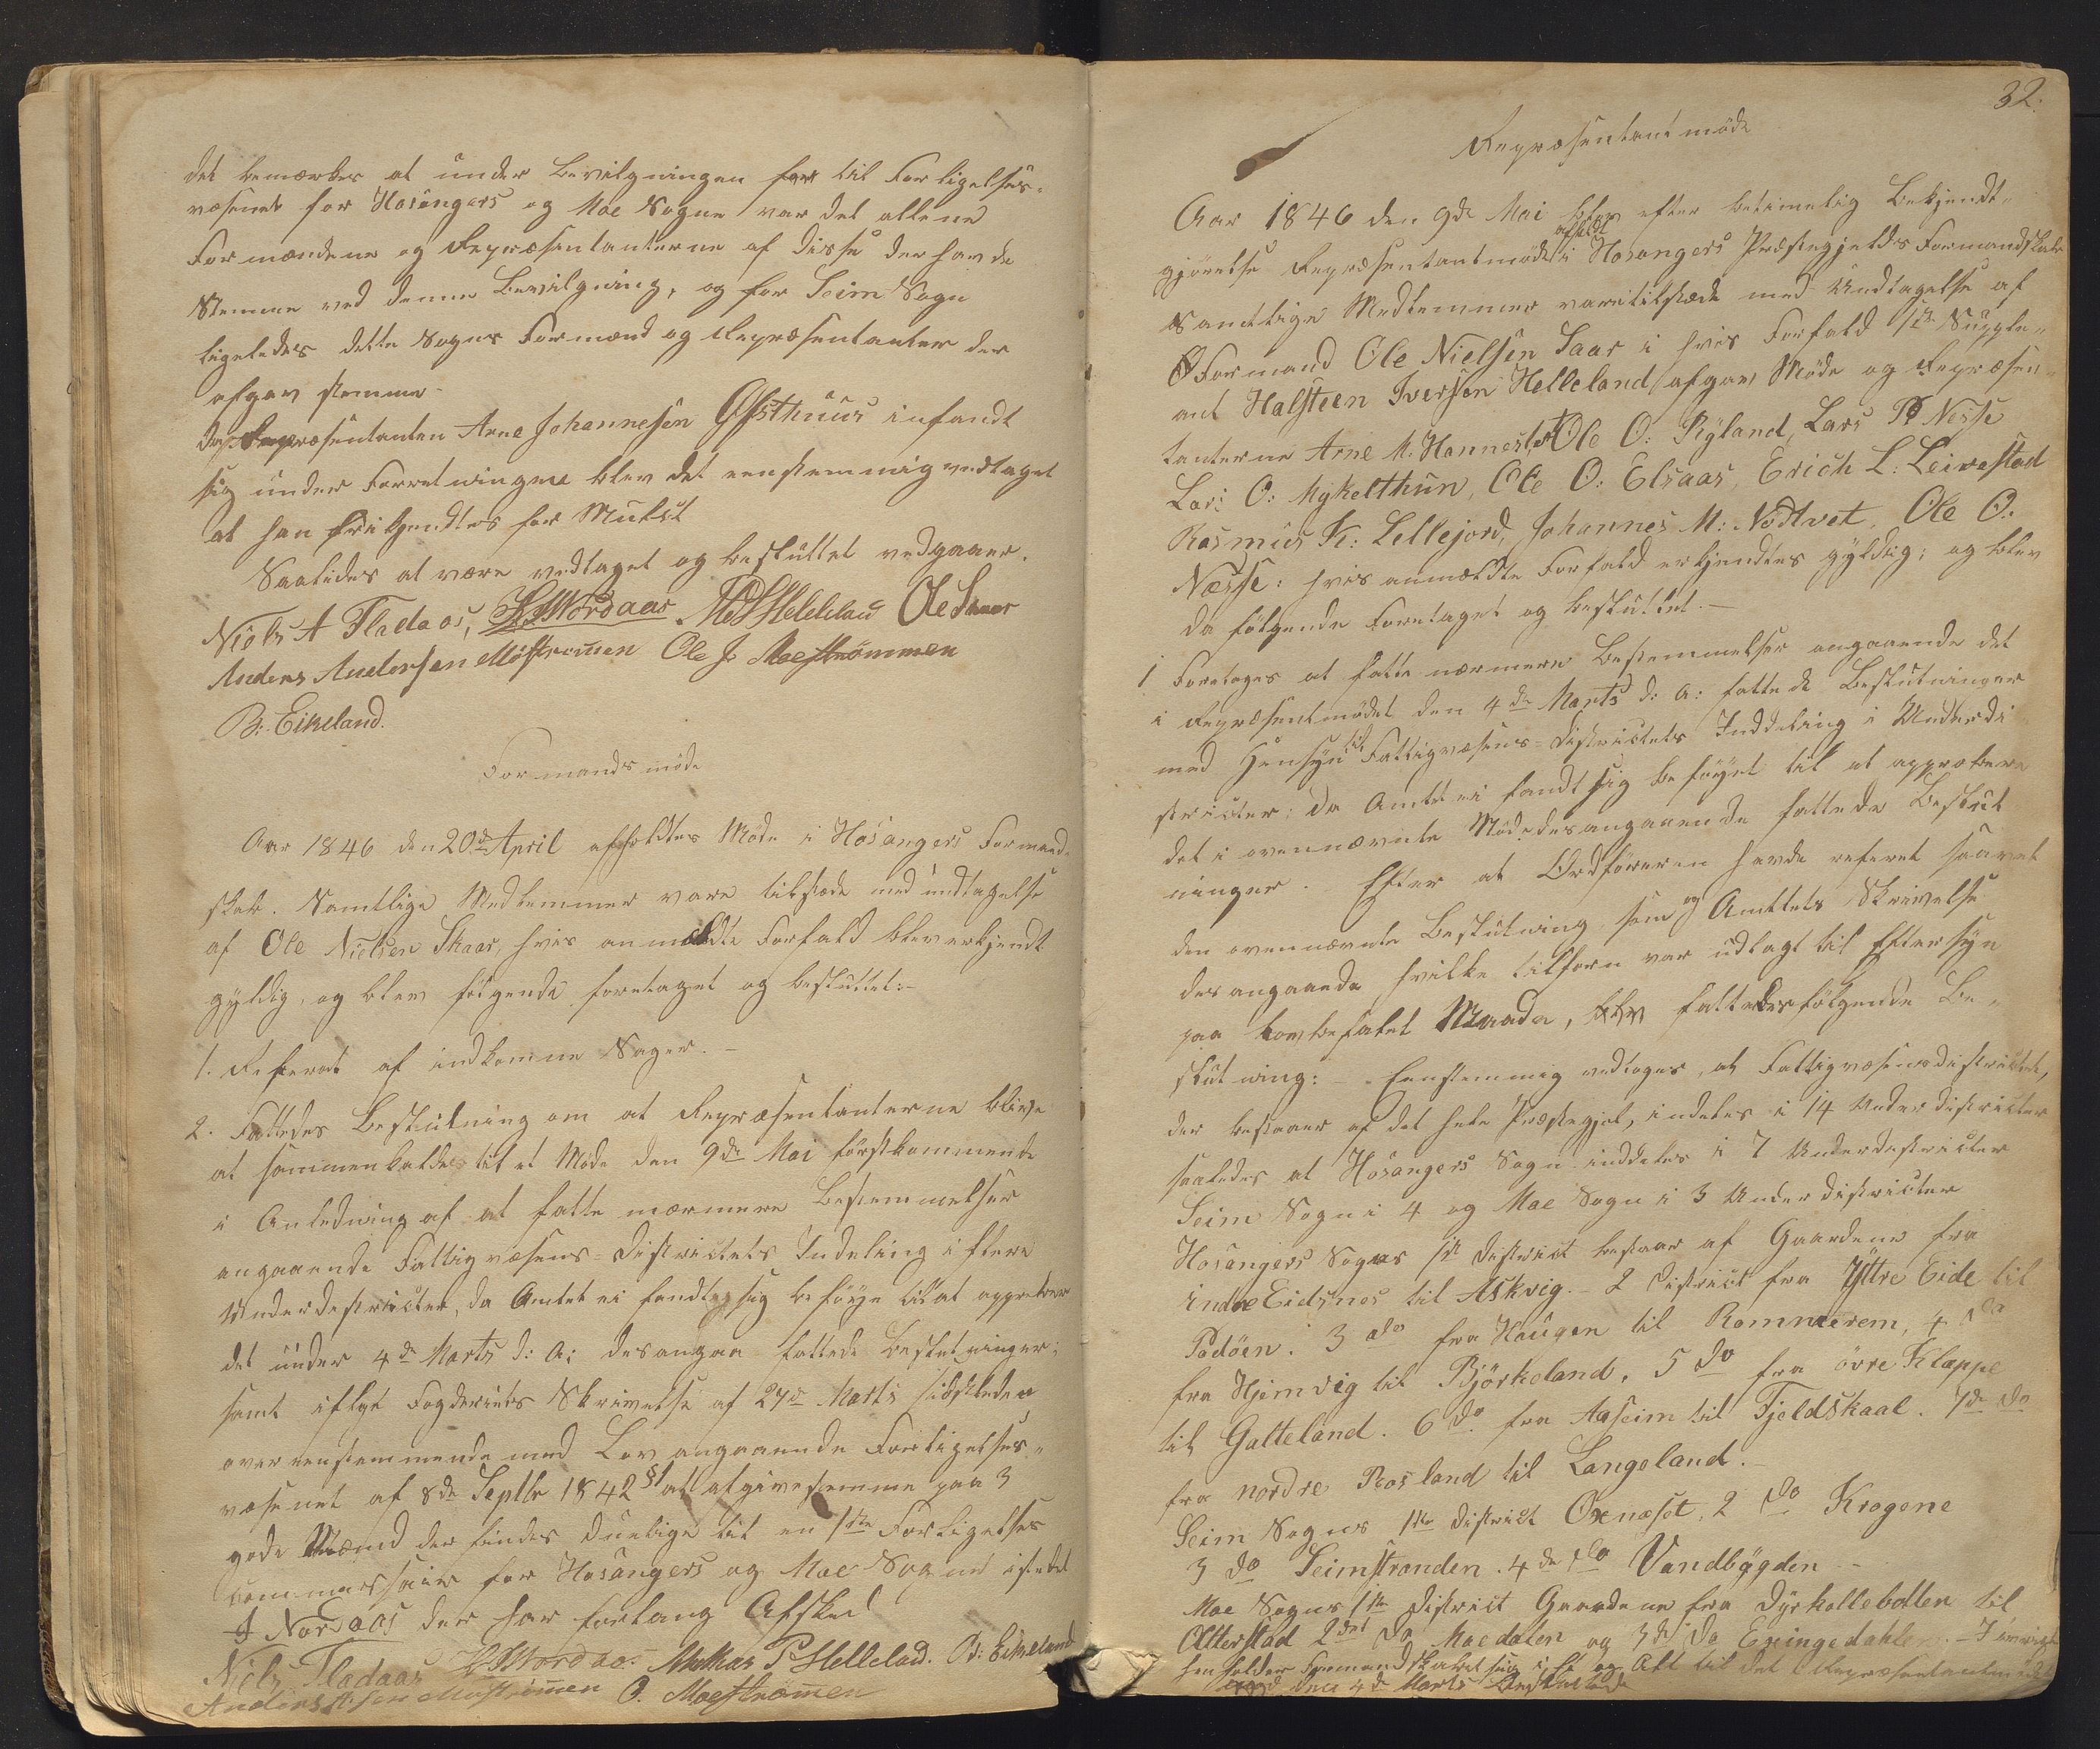 det bemærkes at under Bevilgningen for til Forligelses-
væsenet for Hosangers og Moe Sogne var det allene
Formændene og Repræsentanterne af disse der havde
Stemme ved denne Bevilgning, og for Seim Sogn
ligeledes dette Sogns Formænd og Repræsentanter der
afgav stemme
Da Repræsentanten Arne Johannesen Ofsthuus infandt
sig under Forretningene blev det eenstemmig vedtaget
at han frikjendtes for Mulkt
Saaledes at være vedtaget og besluttet vedgaaer.
Niels A Fladaas, Nordaas M P Helleland Ole Skaar
Anders Andersen Moestrømen Ole J. Moestrømmen
B: Eikeland.
Formandsmøde
Aar 1846 den 20de April afholdtes Møde i Hosangers Formand-
skab. Samtlige Medlemmer vare tilstæde med undtagelse
af Ole Nielsen Skaar, hvis anmældte Forfald blev erkjendt
gyldig, og blev følgende foretaget og besluttet:-
1. Referat af indkomne Sager. -
2. Fattedes Beslutning om at Repræsentanterne blive
at sammenkaldes til et Møde den 9de Mai førstkommende
i Anledning af at fatte nærmere Bestemmelser
angaaende Fattigvæsens-Districtets Indeling i flere
Underdestricter, da Amtet ei fandt sig beføye til at approbere
det under 4de Marts d: A: desangaa fattede Beslutninger;
samt ifølge Fogderiets Skrivelse af 27de Marts sidstleden
overeenstemmende med Lov angaaende Forligelses-
væsenet af 8de Septbr 1842 § 1 at afgive stemme paa 3
gode Mænd der findes duelige til en 1ste Forligelses
commissair for Hosangers og Moe Sogne istedet
J Nordaas der har forlang Afsked
Niels Fladaas Nordaas. Mikkas P Helleland. B: Eikeland
Anders Moestrømen O. Moestrømen
32.
Repræsentantmøde
Aar 1846 den 9de Mai blev efter betimelig Bekjendt-
gjørelse Repræsentantmøde afholdt i Hosangers Præstegjelds Formandskab
Samtlige Medlemmer vare tilstæde med Undtagelse af
Formand Ole Nielsen Saar i hvis Forfald 1ste Supple-
ant Halsteen Iversen Helleland afgav Møde og Repræsen-
tanterne Arne M. Hannesdal Ole O: Ryland, Lars P Nesse
Lars O: Mykelthun, Ole O: Elsaas, Erich L: Leirestad
Rasmus K: Lellejord, Johannes M: Nødtvet, Ole O.
Næsse: hvis anmældte Forfald erkjendtes gyldig; og blev
da følgende Foretaget og besluttet.-
1 Foretoges at fatte nærmere Bestemmelser angaaende det
i Repræsentmødet den 4de Marts d: A: fattede Beslutninger
med Hensyn til Fattigvæsens-Districtets Inddeling i Underdi-
stricter: da Amtet ei fandt sig beføyet til at approbere
det i ovennævnte Møde desangaaende fattede Beslut
ninger. Efter at Ordføreren havde referet saavel
den ovennævnte Beslutning som og Amttets Skrivelse
desangaaende hvilke tilforn var udlagt til Eftersyn
paa lovbefalet Maade, blev fattedes følgende Be-
slutning: - Eenstemmig vedtoges, at Fattigvæsensdistrictet,
der bestaaer af det hele Præstegjel, indeles i 14 Underdistricter
saaledes at Hosangers Sogn inddeles i 7 Underdistricter
Seim Sogn i 4 og Moe Sogn i 3 Underdistricter
Hosangers Sogns 1st District bestaar af Gaardene fra
indre Eidsnes til Askvig. - 2 District fra Yttre Eide til
Padøen. 3 do fra Haugen til Rommerem, 4 do
fra Hjemvig til Bjørkeland, 5 do fra øvre Klæppe
til Galteland. 6 do fra Aaseim til Fjeldskaal. 7de do
fra nordre Rosland til Langeland.-
Seim Sogns 1ste District Oxnæset, 2 do Krogene
3 do Seimstranden. 4de do Vandbøgden -
Moe Sogns 1ste District Gaardene fra Dyrkollebotten til
Otterstad 2det do Moedalen og 3de do Exingedahlen. - I øvrigt
henholder Formandskabet sig i Et og Alt til det Repræsentantmøde
den 4de Marts